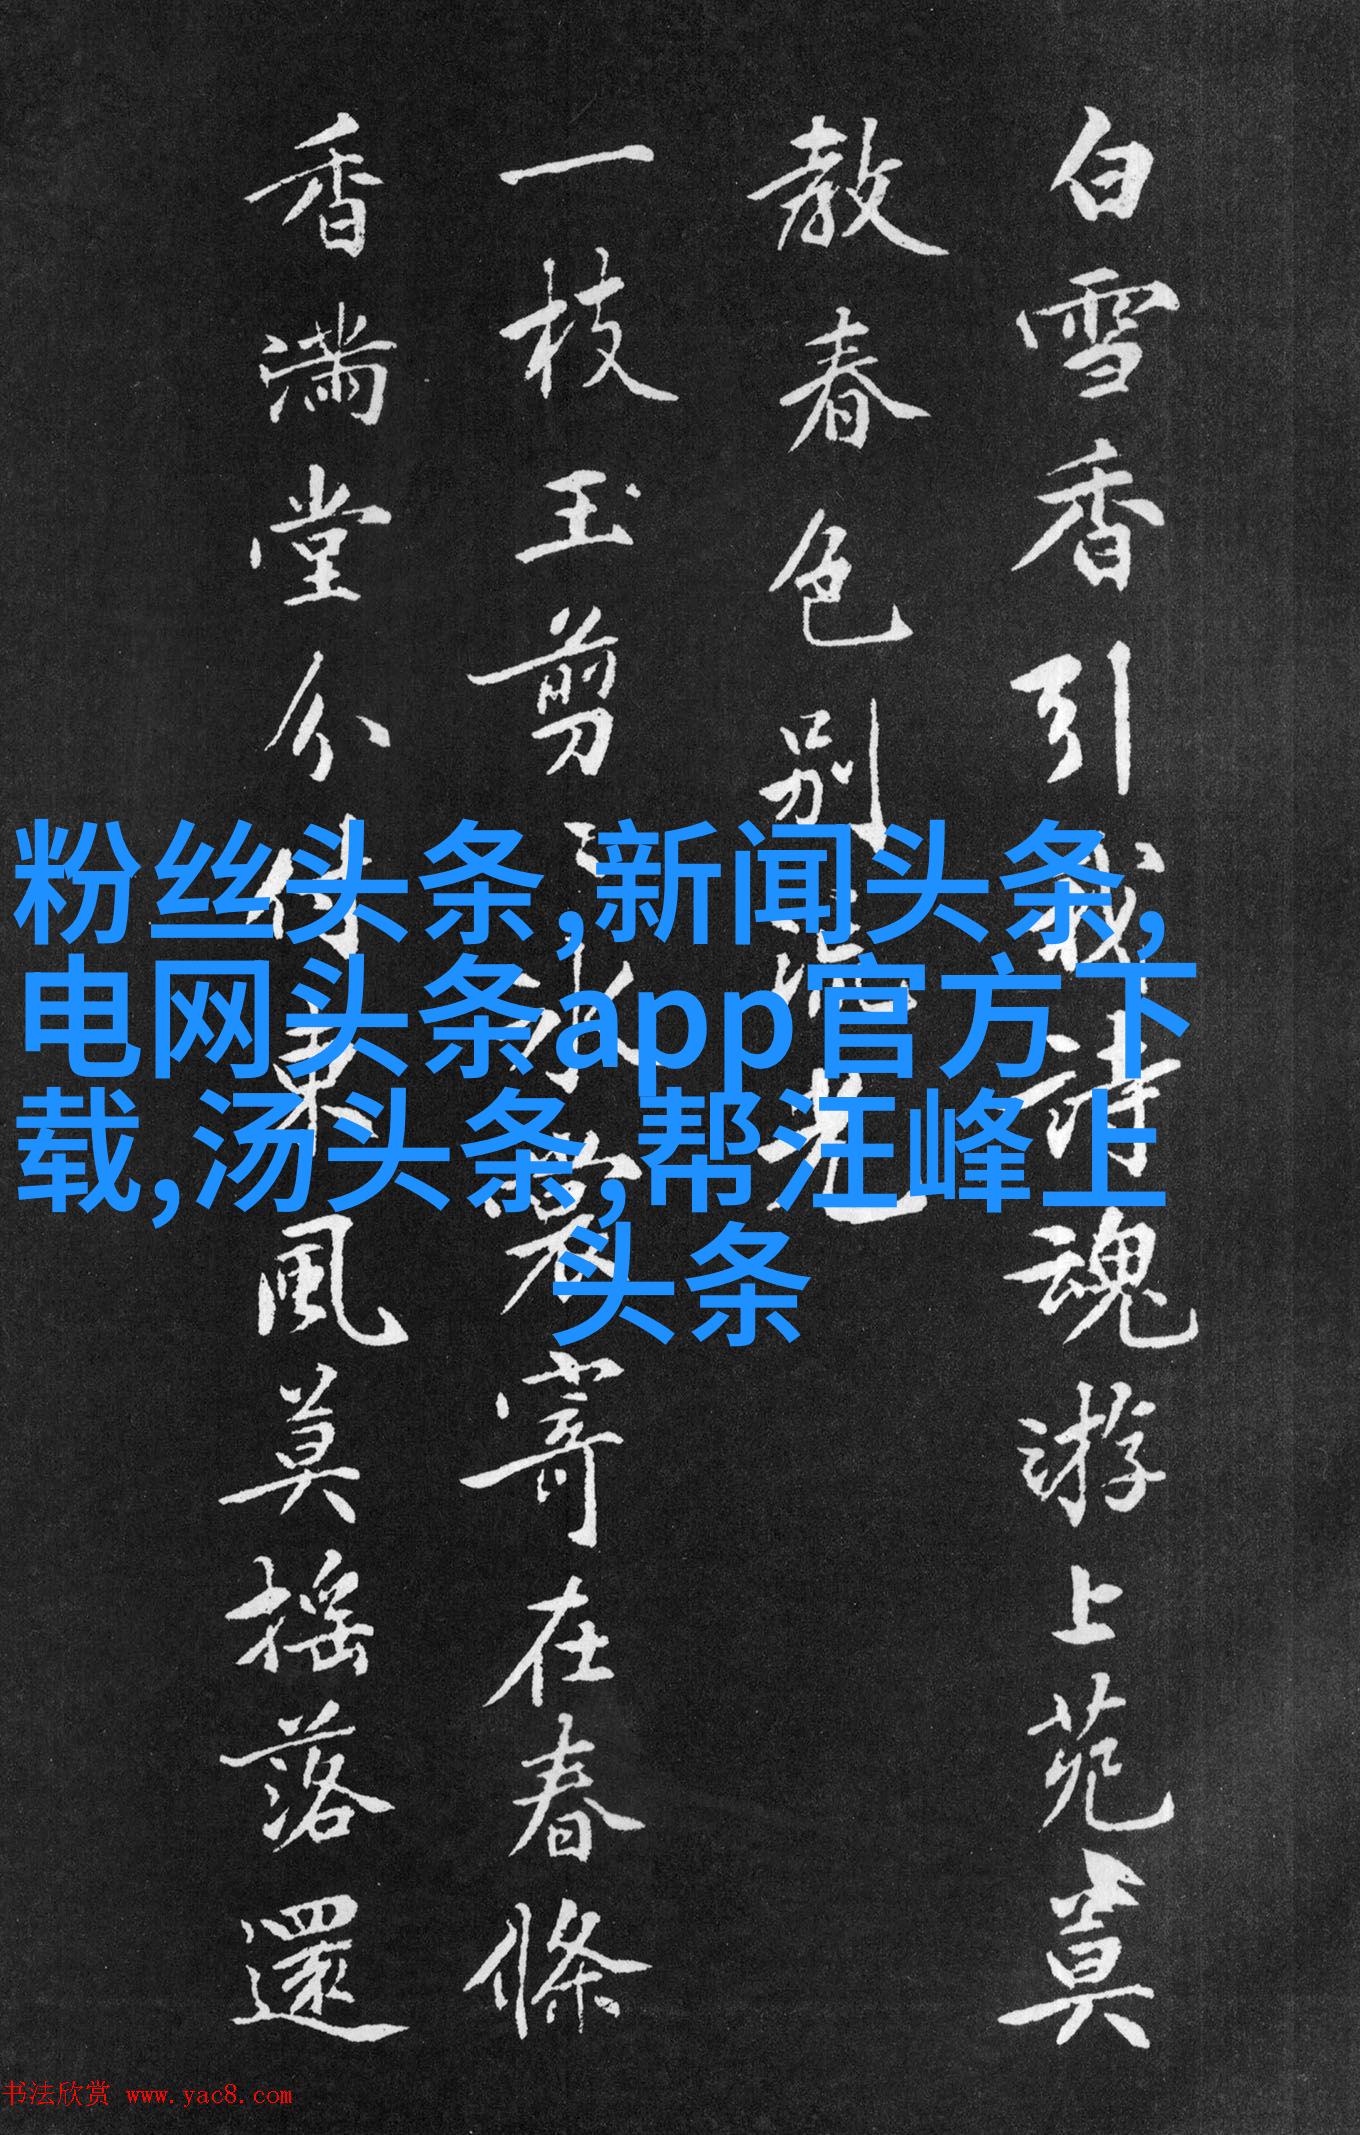 白雪香引我詩魂游上苑莫
敎春色別光
一枝玉剪冰寄在春條
香滿堂分付東風莫搖落還
粉丝头条,新闻头条,
电网头条app官方下
载,汤头条,帮汪峰上
头条
书法欣赏 www.yac8.com